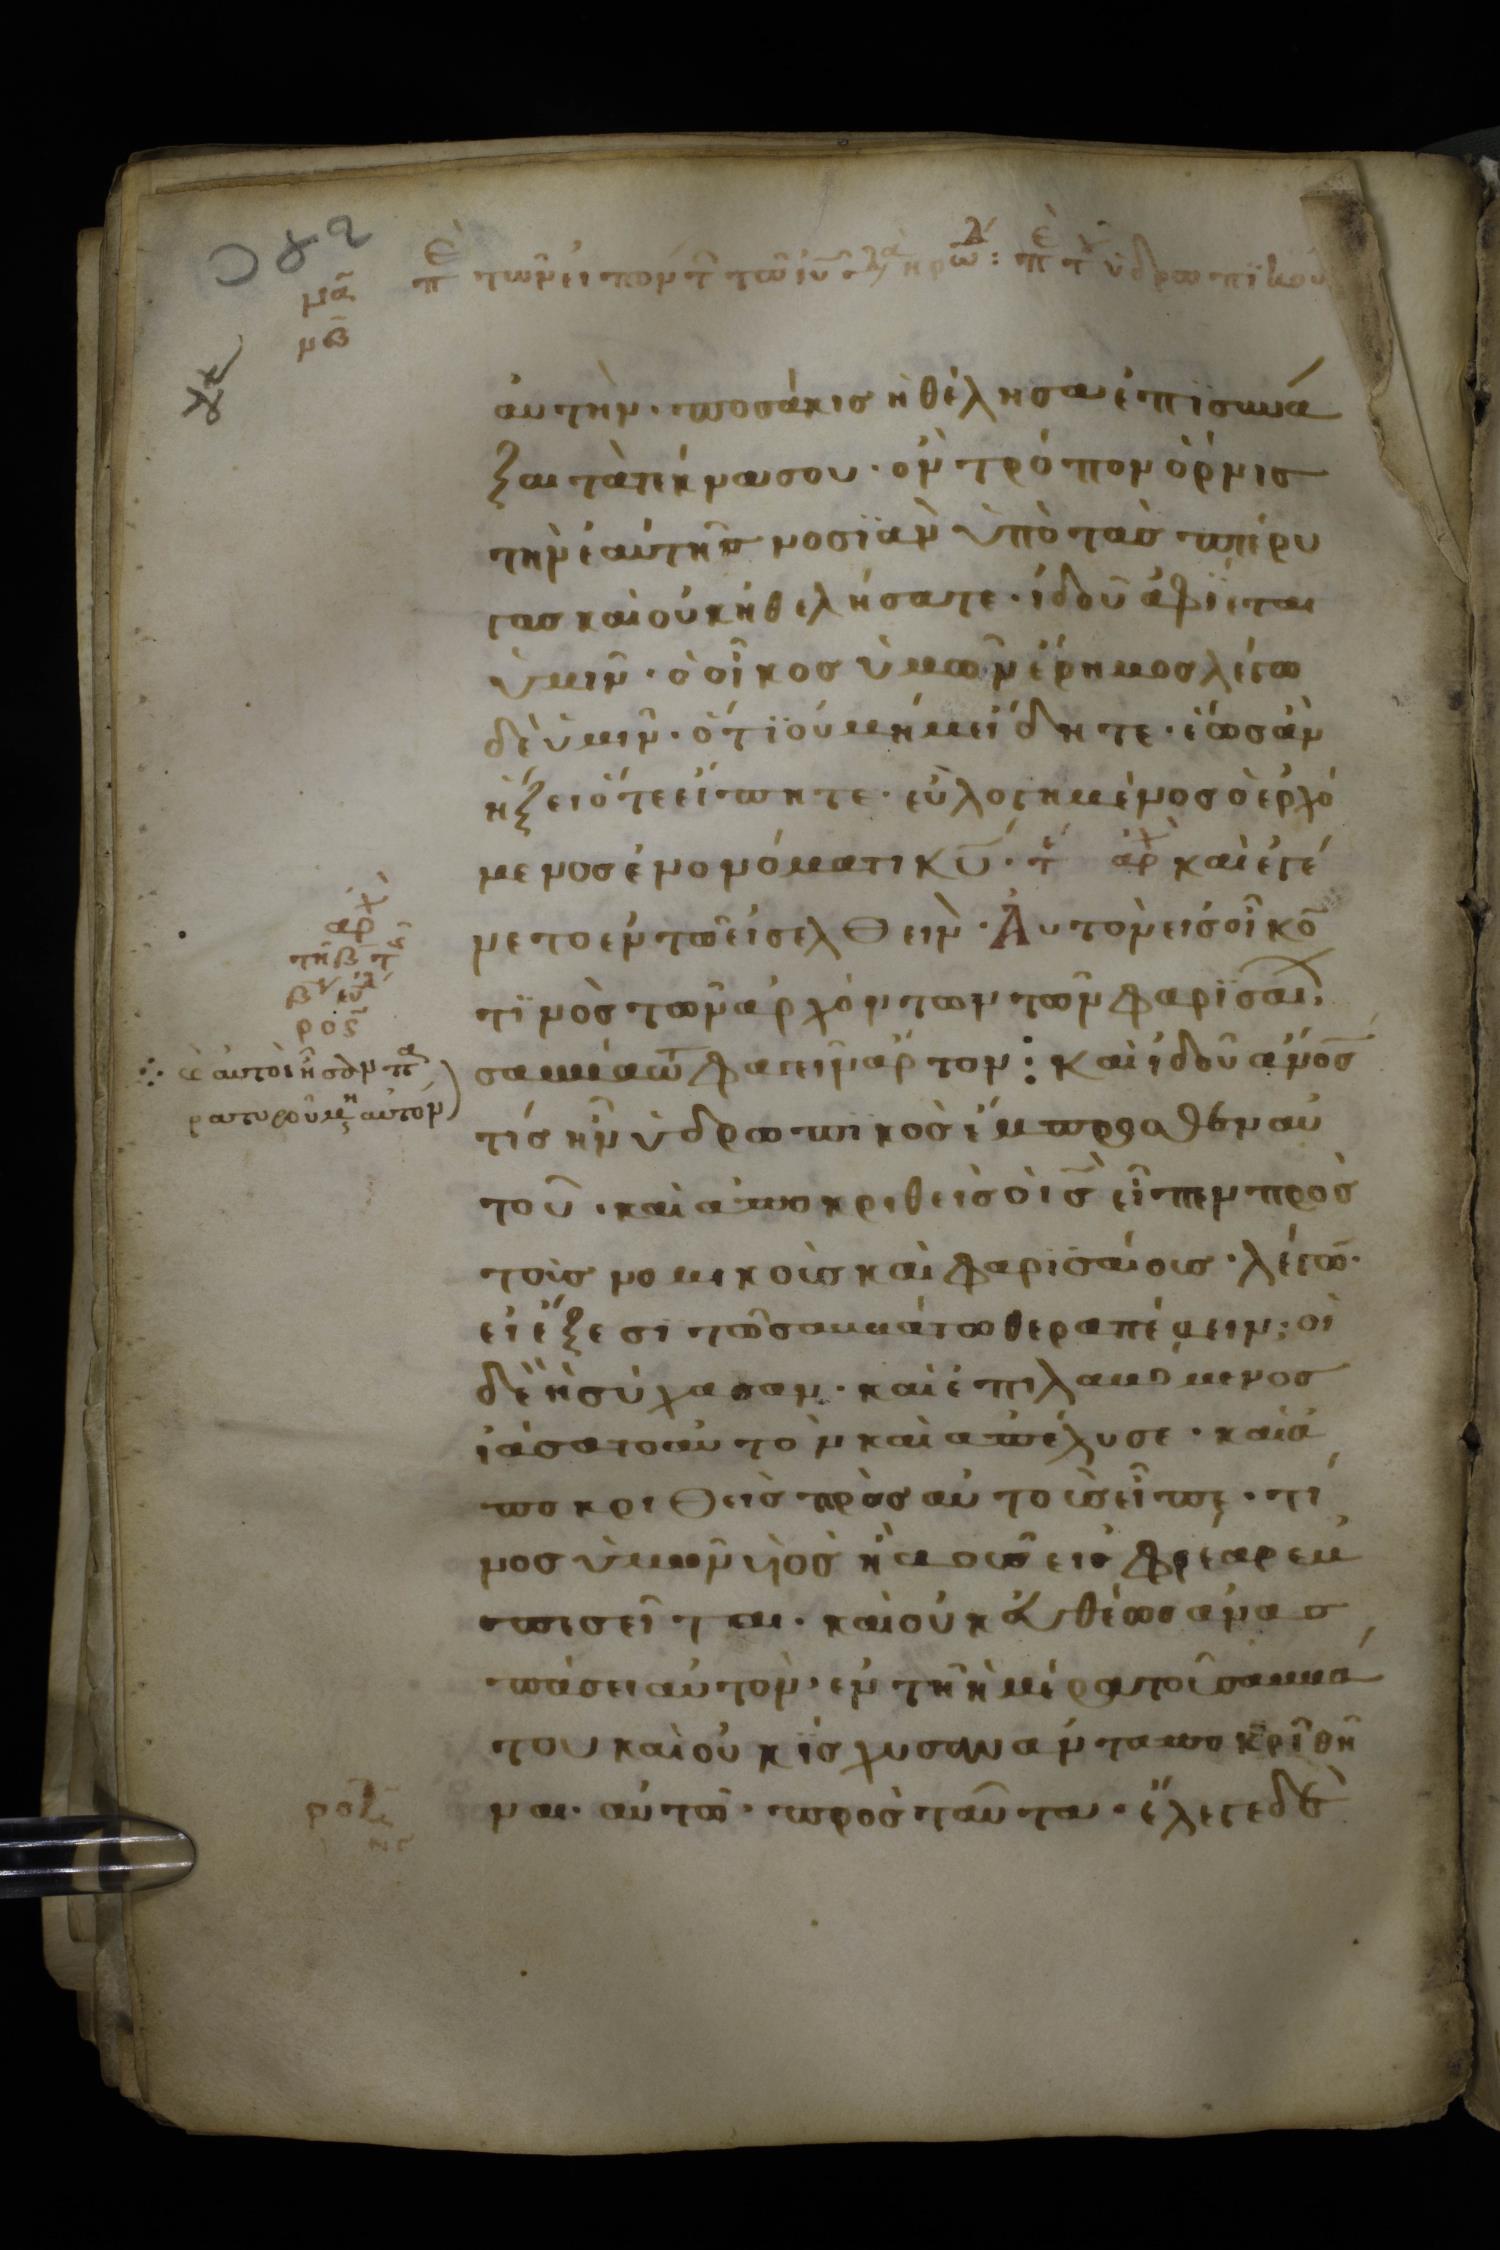 μα̅
μβ̅
αυτὴν · ποσάκισ ἠθέλησα ἐπϊσυνά
ξαι τὰ τέκνα σου · ὃν τρόπον ὄρνισ
τὴν ἑαυτῆσ νοσϊὰν ὑπὸ τὰσ πτέρυ
γασ καὶ οὐκ ἠθελήσατε · ἰδοῦ ἀφϊεται
ὑμῖν · ὁ οἶκοσ ὑμῶν ἔρημοσ λέγω
δὲ ὑμῖν · ὅτϊ οὐ μή με ἴδητε · ἕωσ ἂν
ἥξει ὅτε εἴπητε · εὐλογημένοσ ὁ ἐρχό
μενοσ ἐν ονόματι κυ̅ · τε αρχ καὶ ἐγέ
νετο ἐν τῶ εἰσελθειν · Ἀυτὸν εισ οἶκο̅
τϊνὸσ τῶν ἀρχόντων τῶν φαρϊσαι,
σαββάτω φαγεῖν ἄρτον : καὶ ἰδοῦ ἄνοσ̅
τίσ ἦν ὑδρωπϊκὸσ ἔμπροσθεν αυ
τοῦ · καὶ ἀποκριθεὶσ ὁ ισ̅ εἶπεν πρὸσ
τοὺσ νομικοὺσ καὶ φαρϊσαίουσ · λέγω̅ ·
εἰ ἔξεστϊ τῶ σαββάτω θεραπέυειν ; οἱ
δὲ ἡσύχασαν · καὶ ἐπιλαβόμενοσ
ἰάσατο αυτὸν καὶ ἀπέλυσε · καὶ ἀ
ποκριθεὶσ πρὸσ αὐτοὺσ εἶπε · τί
νοσ ὑμῶν ὑὸσ ἢ βοῦσ εἰσ φρέαρ ἐμ
πεσεῖται · καὶ οὐκ ἐυθέωσ ἀνασ
πάσει αὐτὸν · ἐν τῆ ἡμέρα τοῦ σαββά
του καὶ οὐκ ἴσχυσαν ἀνταποκρϊθῆ
ναι · αὐτῶ · πρὸσ ταῦτα · ἔλεγε δὲ